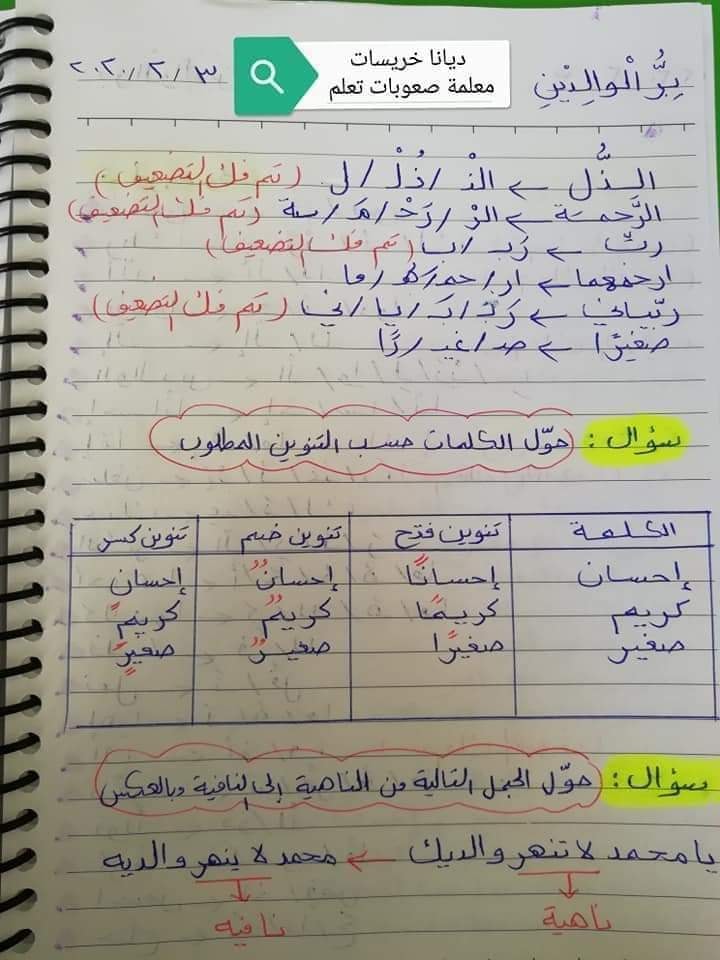 بِرُّ الْوالِدَيْنِ
ديانا خريسات
معلمة صعوبات تعلم
٣ / ٢ / ٢٠٢٠
الذُّل ← الْذ / ذُلْ / ل (تم فك التضعيف)
الرَّحمة ← الرْ / رَحْ / مَـ / ـة (تم فك التضعيف)
ربِّ ← رَبـ / ـب (تم فك التضعيف)
ارحمهما ← ار / حمـ / هُـ / ما
ربّياني ← رَبـ / بَـ / يا / ني (تم فك التضعيف)
صغيرًا ← صـ / غيـ / رًا
سؤال : حوّل الكلمات حسب التنوين المطلوب
الكلمة تنوين فتح تنوين ضم تنوين كسر
إحسان إحسانًا إحسانٌ إحسانٍ
كريم كريمًا كريمٌ كريمٍ
صغير صغيرًا صغيرٌ صغيرٍ
سؤال : حوّل الجمل التالية من الناهية إلى النافية وبالعكس
يا محمد لا تنهر والديك ← محمد لا ينهر والديه
ناهية نافيه